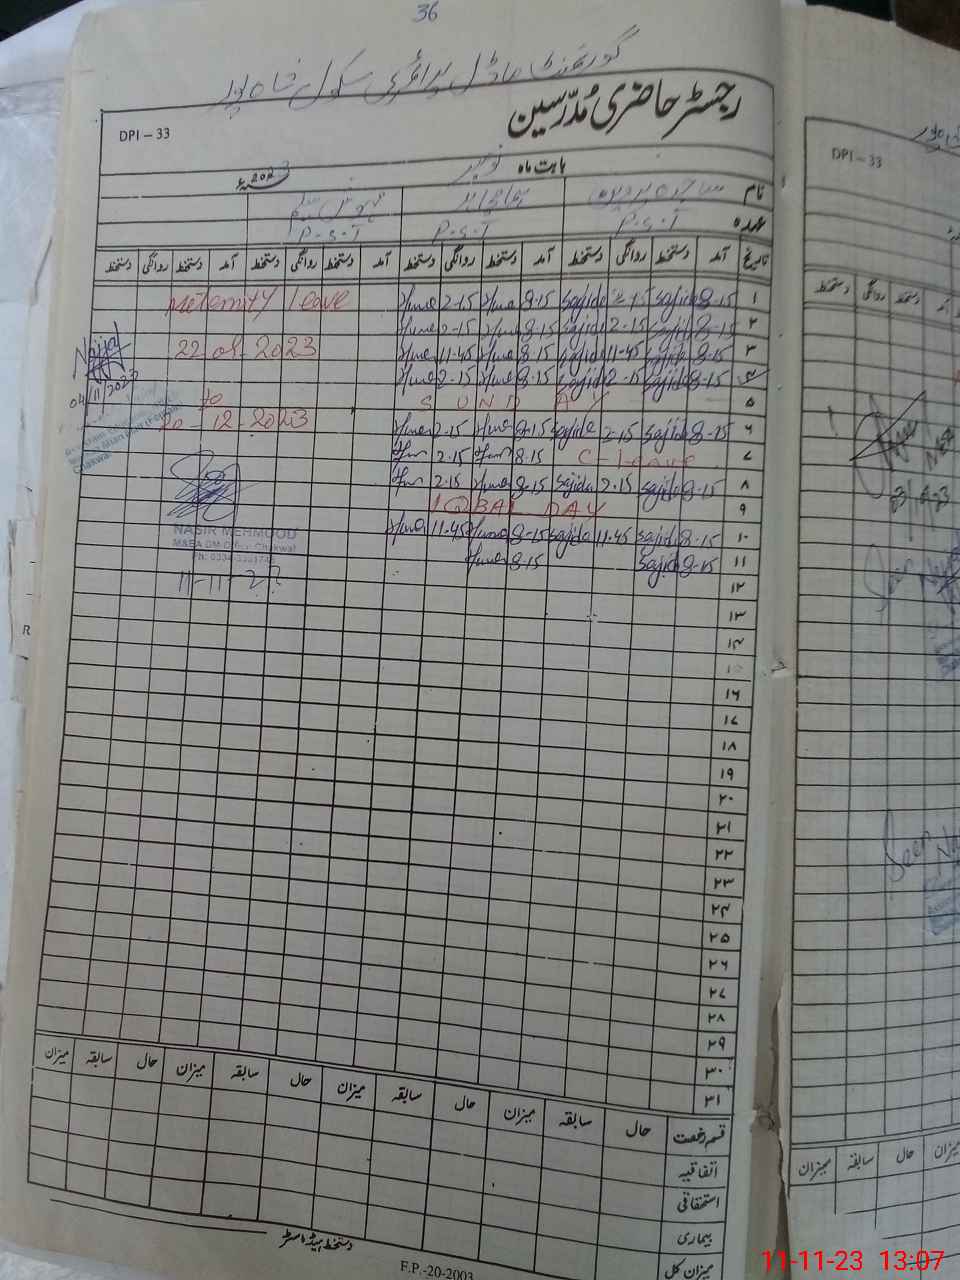 36
گورنمنٹ ماڈل پرائمری سکول شاہ پور
رجسٹر حاضری مُدرّسین
DPI – 33
بابت ماہ نومبر 2023ء
نام ساجدہ پروین
عہدہ P.S.T P.S.T P.S.T
تاریخ آمد دستخط روانگی دستخط آمد دستخط روانگی دستخط آمد دستخط روانگی دستخط آمد دستخط روانگی دستخط
۱ 8-15 Sajida 2-15 Sajida 8-15 Huma 2-15 Huma Meternity leave
۲ 8-15 Sajida 2-15 Sajida 8-15 Huma 2-15 Huma
۳ 8-15 Sajida 11-45 Sajida 8-15 Huma 11-45 Huma 22-08-2023
۴ 8-15 Sajida 2-15 Sajida 8-15 Huma 2-15 Huma
04/11/2023
۵ SUNDAY to
۶ 8-15 Sajida 2-15 Sajida 8-15 Huma 2-15 Huma 20-12-2023
۷ C-leave 8-15 Hum 2-15 Hum
۸ 8-15 Sajida 2-15 Sajida 8-15 Huma 2-15 Hum
۹ IQBAL DAY
۱۰ 8-15 Sajida 11-45 Sajida 8-15 Huma 11-45 Huma
۱۱ 8-15 Sajida 8-15 Huma
NASIR MEHMOOD
M&EA DM Office Chakwal
11-11-23
۱۲
۱۳
۱۴
۱۵
۱۶
۱۷
۱۸
۱۹
۲۰
۲۱
۲۲
۲۳
۲۴
۲۵
۲۶
۲۷
۲۸
۲۹
۳۰
۳۱
قسم رخصت حال سابقہ میزان حال سابقہ میزان حال سابقہ میزان حال سابقہ میزان
اتفاقیہ
استحقاقی
بیماری
میزان کل
دستخط ہیڈ ماسٹر
F.P.-20-2003
DPI – 33
دستخط روانگی دستخط
Seen
Seen
میزان حال سابقہ میزان
11-11-23 13:07